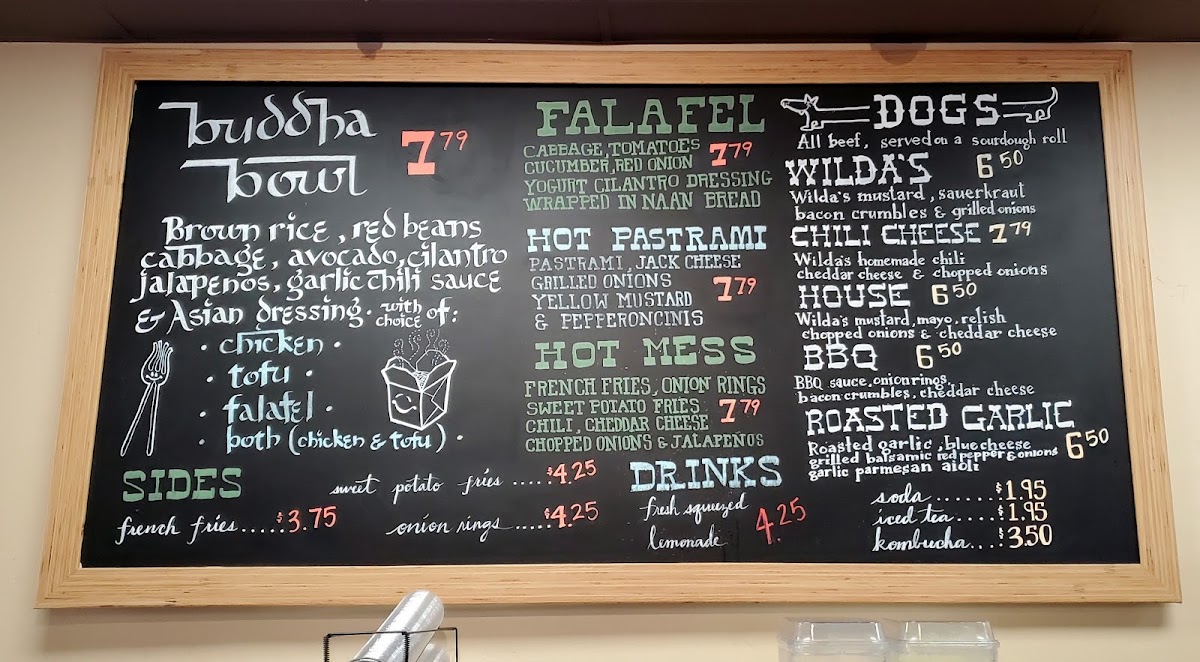 buddha
bowl
7 79
Brown rice, red beans
cabbage, avocado, cilantro
jalapeños, garlic chili sauce
& Asian dressing. with choice of:
· chicken ·
· tofu ·
· falafel ·
· both (chicken & tofu) ·
SIDES
french fries....$3.75
sweet potato fries.....$4.25
onion rings.....$4.25
FALAFEL
CABBAGE, TOMATOES
CUCUMBER, RED ONION 7 79
YOGURT CILANTRO DRESSING
WRAPPED IN NAAN BREAD
HOT PASTRAMI
PASTRAMI, JACK CHEESE
GRILLED ONIONS 7 79
YELLOW MUSTARD
& PEPPERONCINIS
HOT MESS
FRENCH FRIES, ONION RINGS
SWEET POTATO FRIES 7 79
CHILI, CHEDDAR CHEESE
CHOPPED ONIONS & JALAPEÑOS
DOGS
All beef, served on a sourdough roll
WILDA'S 6 50
Wilda's mustard, sauerkraut
bacon crumbles & grilled onions
CHILI CHEESE 7 79
Wilda's homemade chili
cheddar cheese & chopped onions
HOUSE 6 50
Wilda's mustard, mayo, relish
chopped onions & cheddar cheese
BBQ 6 50
BBQ sauce, onion rings,
bacon crumbles, cheddar cheese
ROASTED GARLIC
Roasted garlic, blue cheese 6 50
grilled balsamic red pepper & onions
garlic parmesan aioli
DRINKS
fresh squeezed
lemonade 4.25
soda.......$1.95
iced tea....$1.95
kombucha...$3.50